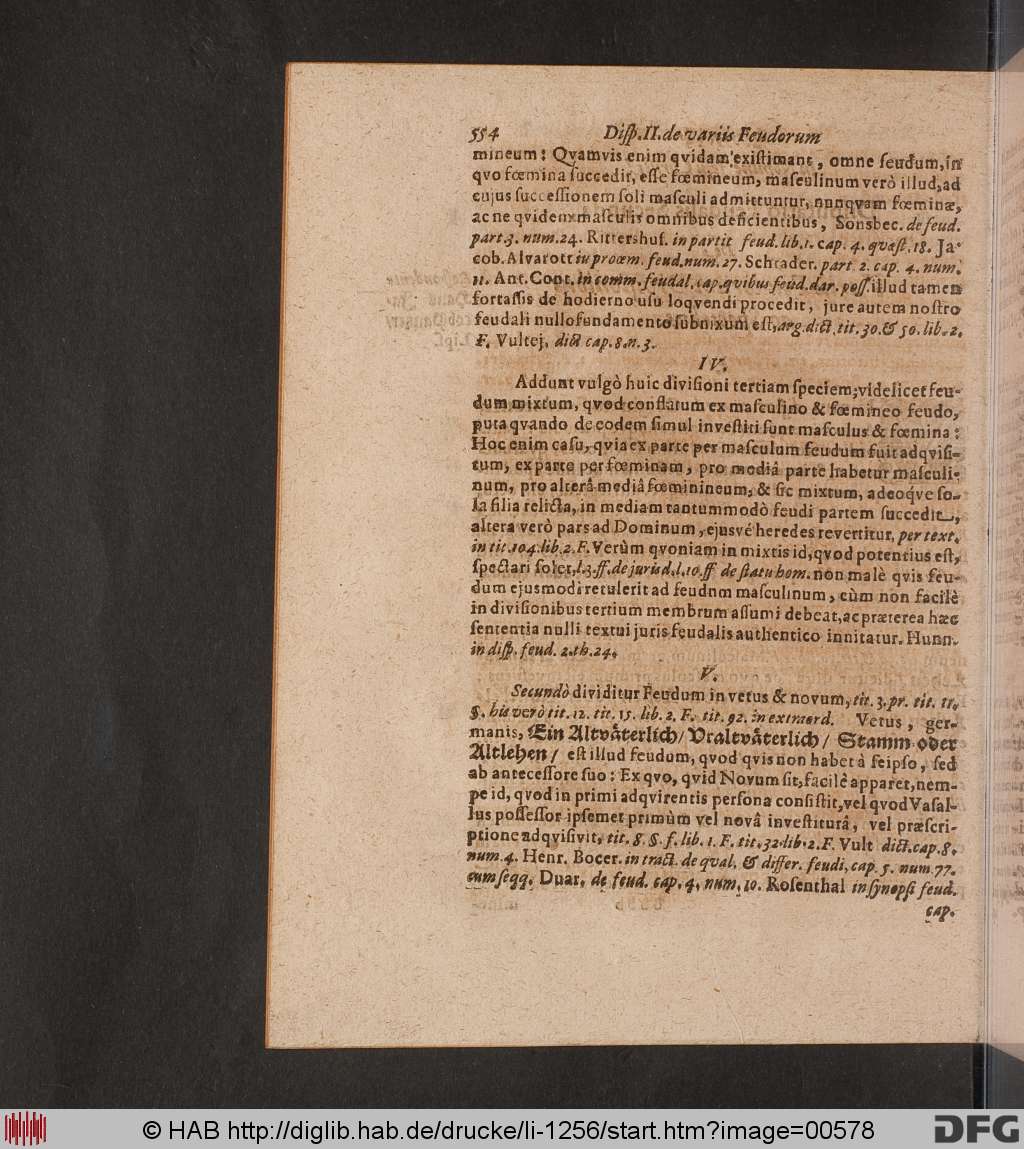 554 Diſp. II. de variis Feudorum
mineum: Qvamvis enim qvidam exiſtimant, omne feudum, in
qvo fœmina ſuccedit, eſſe fœmineum, maſculinum verò illud, ad
cujus ſucceſſionem ſoli maſculi admittuntur, nunqvam fœminæ,
ac ne qvidem maſculis omnibus deficientibus, Sonsbec. de feud.
part 3. num. 24. Rittershuſ. in partit feud. lib. 1. cap. 4. qvæſt. 18. Ja-
cob. Alvarott in proœm. feud. num. 27. Schrader. part. 2. cap. 4. num.
11. Ant. Cont. in comm. feudal. cap. qvibus feud. dar. poſſ. illud tamen
fortaſſis de hodierno uſu loqvendi procedit, jure autem noſtro
feudali nullo fundamento ſubnixum eſt, arg. dict. tit. 30. & 50. lib. 2.
F. Vultej. dict cap. 8. n. 3.
IV.
Addunt vulgò huic diviſioni tertiam ſpeciem; videlicet feu-
dum mixtum, qvod conflatum ex maſculino & fœmineo feudo,
puta qvando de eodem ſimul inveſtiti ſunt maſculus & fœmina:
Hoc enim caſu, qvia ex parte per maſculum feudum fuit adqviſi-
tum, ex parte per fœminam, pro mediâ parte habetur maſculi-
num, pro alterâ mediâ fœminineum, & ſic mixtum, adeoq́ve ſo-
la filia relicta, in mediam tantummodò feudi partem ſuccedit,
altera verò pars ad Dominum, ejusvé heredes revertitur, per text.
in tit. 104. lib. 2. F. Verùm qvoniam in mixtis id, qvod potentius eſt,
ſpectari ſolet, l. 3. ff. de jurisd. l. 10. ff de ſtatu hom. non malè qvis feu-
dum ejusmodi retulerit ad feudum maſculinum, cùm non facilè
in diviſionibus tertium membrum aſſumi debeat, ac præterea hæc
ſententia nulli textui juris feudalis authentico innitatur. Hunn.
in diſp. feud. 2. th. 24.
V.
Secundò dividitur Feudum in vetus & novum, tit. 3. pr. tit. 11.
§. his verò tit. 12. tit. 15. lib. 2. F. tit. 92. in extraord. Vetus, ger-
manis, Ein Altvåterlich/ Vraltvåterlich/ Stamm oder
Altlehen/ eſt illud feudum, qvod qvis non habet à ſeipſo, ſed
ab anteceſſore ſuo: Ex qvo, qvid Novum ſit, facilè apparet, nem-
pe id, qvod in primi adqvirentis perſona conſiſtit, vel qvod Vaſal-
lus poſſeſſor ipſemet primùm vel novâ inveſtiturâ, vel præſcri-
ptione adqviſivit, tit. 8. §. f. lib. 1. F. tit. 32. lib. 2. F. Vult dict. cap. 8.
num. 4. Henr. Bocer. in tract. de qval. & differ. feudi, cap. 5. num. 77.
cum ſeqq. Duar. de feud. cap. 4. num. 10. Roſenthal in ſynopſi feud.
cap.
© HAB http://diglib.hab.de/drucke/li-1256/start.htm?image=00578
DFG